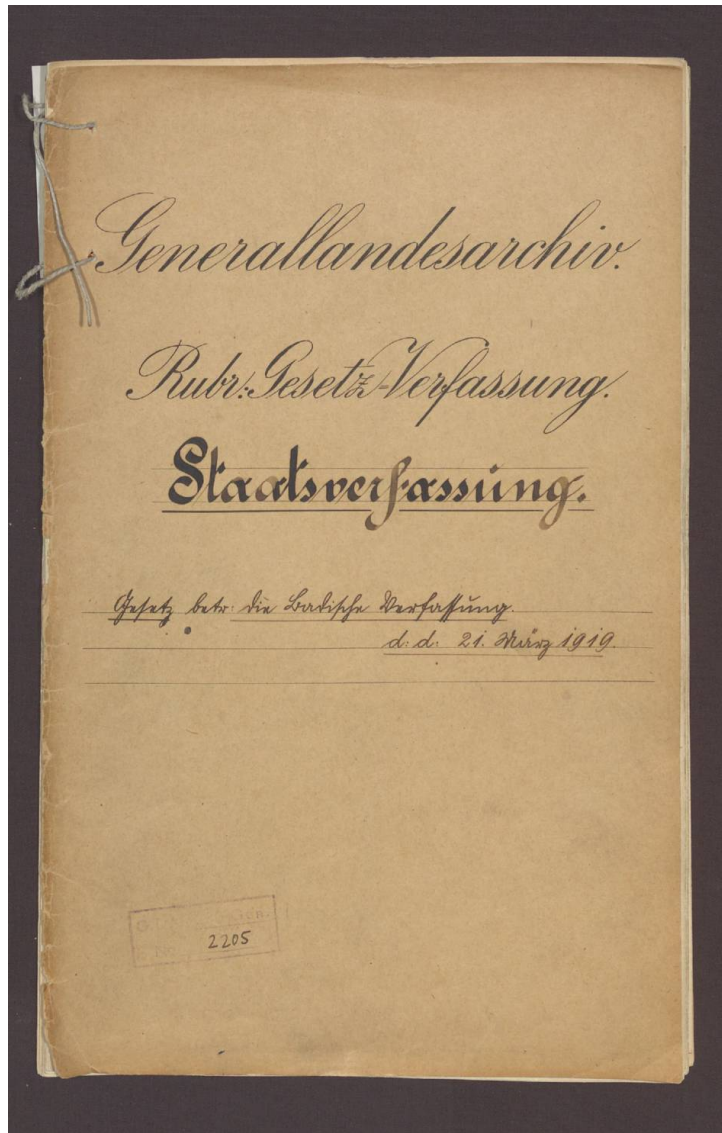 Generallandesarchiv.
Rubr: Gesetz-Verfassung.
Staatsverfassung.
Gesetz betr: die Badische Verfassung.
d: d: 21. März 1919.
2205